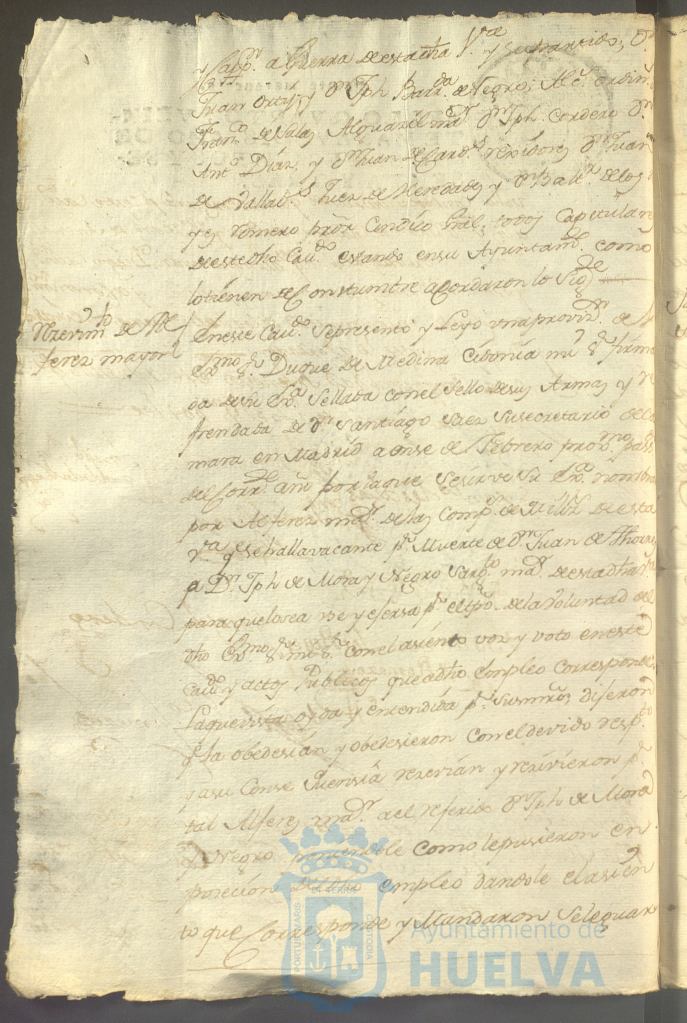 y Capp.n a Guerra de esta dha V.a y su partido, D.n
Juan Ortiz, y D.n Jph Bar.da de Negro, Alc.s ordin.s
Fran.co de Salas Alguacil m.or D.n Jph. Cordero D.n
Ant.o Díaz, y D.n Juan de Card.s rexidores D.n Juan
de Vallad.s Juez de Meredades y D.n Balt.r de los
y Romero pro.r Cindico Gral, todos Capitulares
de este dho Cav.do estando en su Ayuntam.to como
lo tienen de Constumbre acordaron lo Sig.te
Rrecivim.to de Al
ferez mayor
En este Cav.do se presentó y Leyo una provis.on de el
Ex.mo S.r Duque de Medina Cidonia mi S.r firma
da de su Ex.a Sellata con el Sello de sus Armas y re
frendata de D.n Santiago Saez su secretario de Ca
mara en Madrid a onse de Febrero prox.mo pas.do
del Corr.te año por la que se sirve Su Ex.a nombrar
por Alferez m.or de las Comp.s de Miliz.s de esta
V.a q.e se halla vacante p.r Muerte de D.n Juan de
a D.n Jph de Mora y Negro Sarg.to m.or de esta dha V.a
para que lo sea use y exersa p.r el tpo de la Voluntad del
dho Ex.mo S.r mi S.r Con el asiento vos y voto en este
Cav.do y actos Publicos que a dho Empleo Corresponde
La que vista oyda y entendida p.r Sus mrds dijeron
q.e la obedesian y obedesieron con el devido resp.to
y a su Consequensia resevian y resivieron p.r
tal Alferes m.or a el referido D.n Jph de Mora
y Negro poniendole como le pusieron en
posecion de dho empleo dandole el asien
to que Corresponde y Mandaron se le guar
Ayuntamiento de
HUELVA
PORTUS MARIS
CUSTODIA